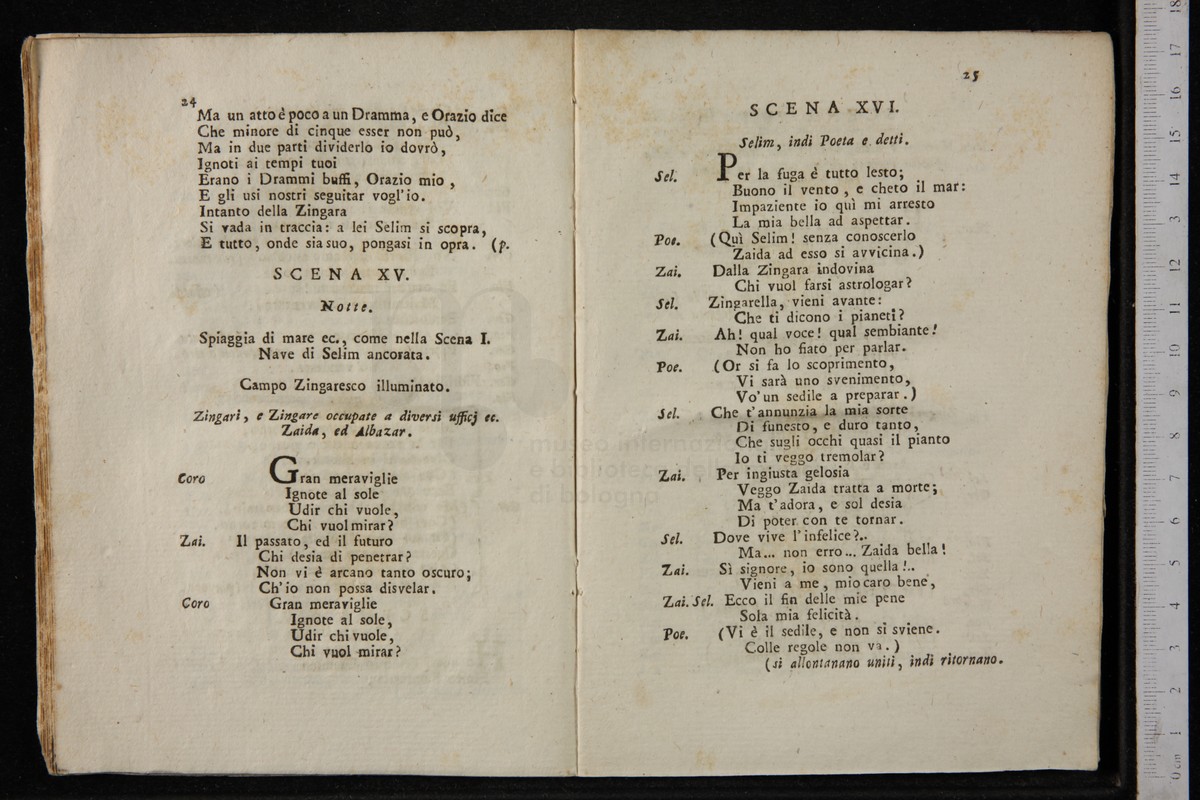 24
Ma un atto è poco a un Dramma, e Orazio dice
Che minore di cinque esser non può,
Ma in due parti dividerlo io dovrò,
Ignoti ai tempi tuoi
Erano i Drammi buffi, Orazio mio,
E gli usi nostri seguitar vogl'io.
Intanto della Zingara
Si vada in traccia: a lei Selim si scopra,
E tutto, onde sia suo, pongasi in opra. (p.
SCENA XV.
Notte.
Spiaggia di mare ec., come nella Scena I.
Nave di Selim ancorata.
Campo Zingaresco illuminato.
Zingari, e Zingare occupate a diversi ufficj ec.
Zaida, ed Albazar.
Coro Gran meraviglie
Ignote al sole
Udir chi vuole,
Chi vuol mirar?
Zai. Il passato, ed il futuro
Chi desia di penetrar?
Non vi è arcano tanto oscuro;
Ch'io non possa disvelar.
Coro Gran meraviglie
Ignote al sole,
Udir chi vuole,
Chi vuol mirar?
25
SCENA XVI.
Selim, indi Poeta e detti.
Sel. Per la fuga è tutto lesto;
Buono il vento, e cheto il mar:
Impaziente io quì mi arresto
La mia bella ad aspettar.
Poe. (Quì Selim! senza conoscerlo
Zaida ad esso si avvicina.)
Zai. Dalla Zingara indovina
Chi vuol farsi astrologar?
Sel. Zingarella, vieni avante:
Che ti dicono i pianeti?
Zai. Ah! qual voce! qual sembiante!
Non ho fiato per parlar.
Poe. (Or si fa lo scoprimento,
Vi sarà uno svenimento,
Vo'un sedile a preparar.)
Sel. Che t'annunzia la mia sorte
Di funesto, e duro tanto,
Che sugli occhi quasi il pianto
Io ti veggo tremolar?
Zai. Per ingiusta gelosia
Veggo Zaida tratta a morte;
Ma t'adora, e sol desia
Di poter con te tornar.
Sel. Dove vive l'infelice?..
Ma... non erro... Zaida bella!
Zai. Sì signore, io sono quella!..
Vieni a me, mio caro bene,
Zai. Sel. Ecco il fin delle mie pene
Sola mia felicità.
Poe. (Vi è il sedile, e non si sviene.
Colle regole non va.)
(si allontanano uniti, indi ritornano.
museo internazi
e biblioteca del
di bologna
0 cm 1 2 3 4 5 6 7 8 9 10 11 12 13 14 15 16 17 18